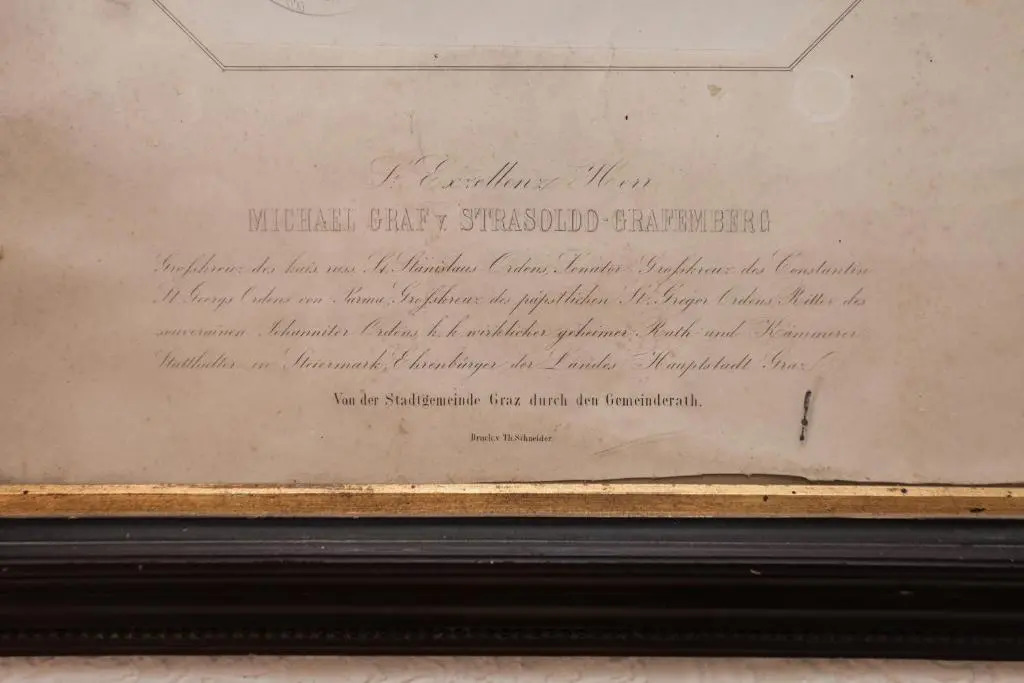 Sr. Exzellenz Herr
MICHAEL GRAF v. STRASOLDO-GRAFEMBERG
Großkreuz des kais. russ. St. Stanislaus Ordens, Senator Großkreuz des Constantin
St. Georgs Ordens von Parma, Großkreuz des päpstlichen St. Gregor Ordens, Ritter des
souverainen Johanniter Ordens, k. k. wirklicher geheimer Rath und Kämmerer
Statthalter in Steiermark, Ehrenbürger der Landes Hauptstadt Graz
Von der Stadtgemeinde Graz durch den Gemeinderath.
Druck v. Th. Schneider.